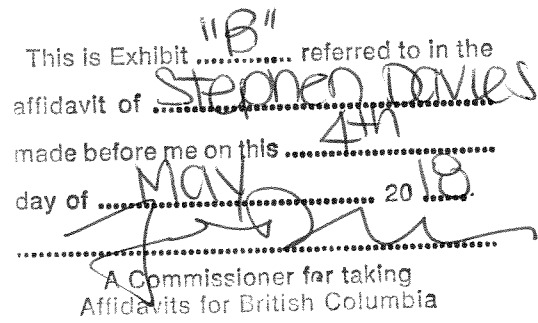 This is Exhibit "B" referred to in the
affidavit of Stephen Davies
made before me on this 4th
day of May 2018.
A Commissioner for taking
Affidavits for British Columbia